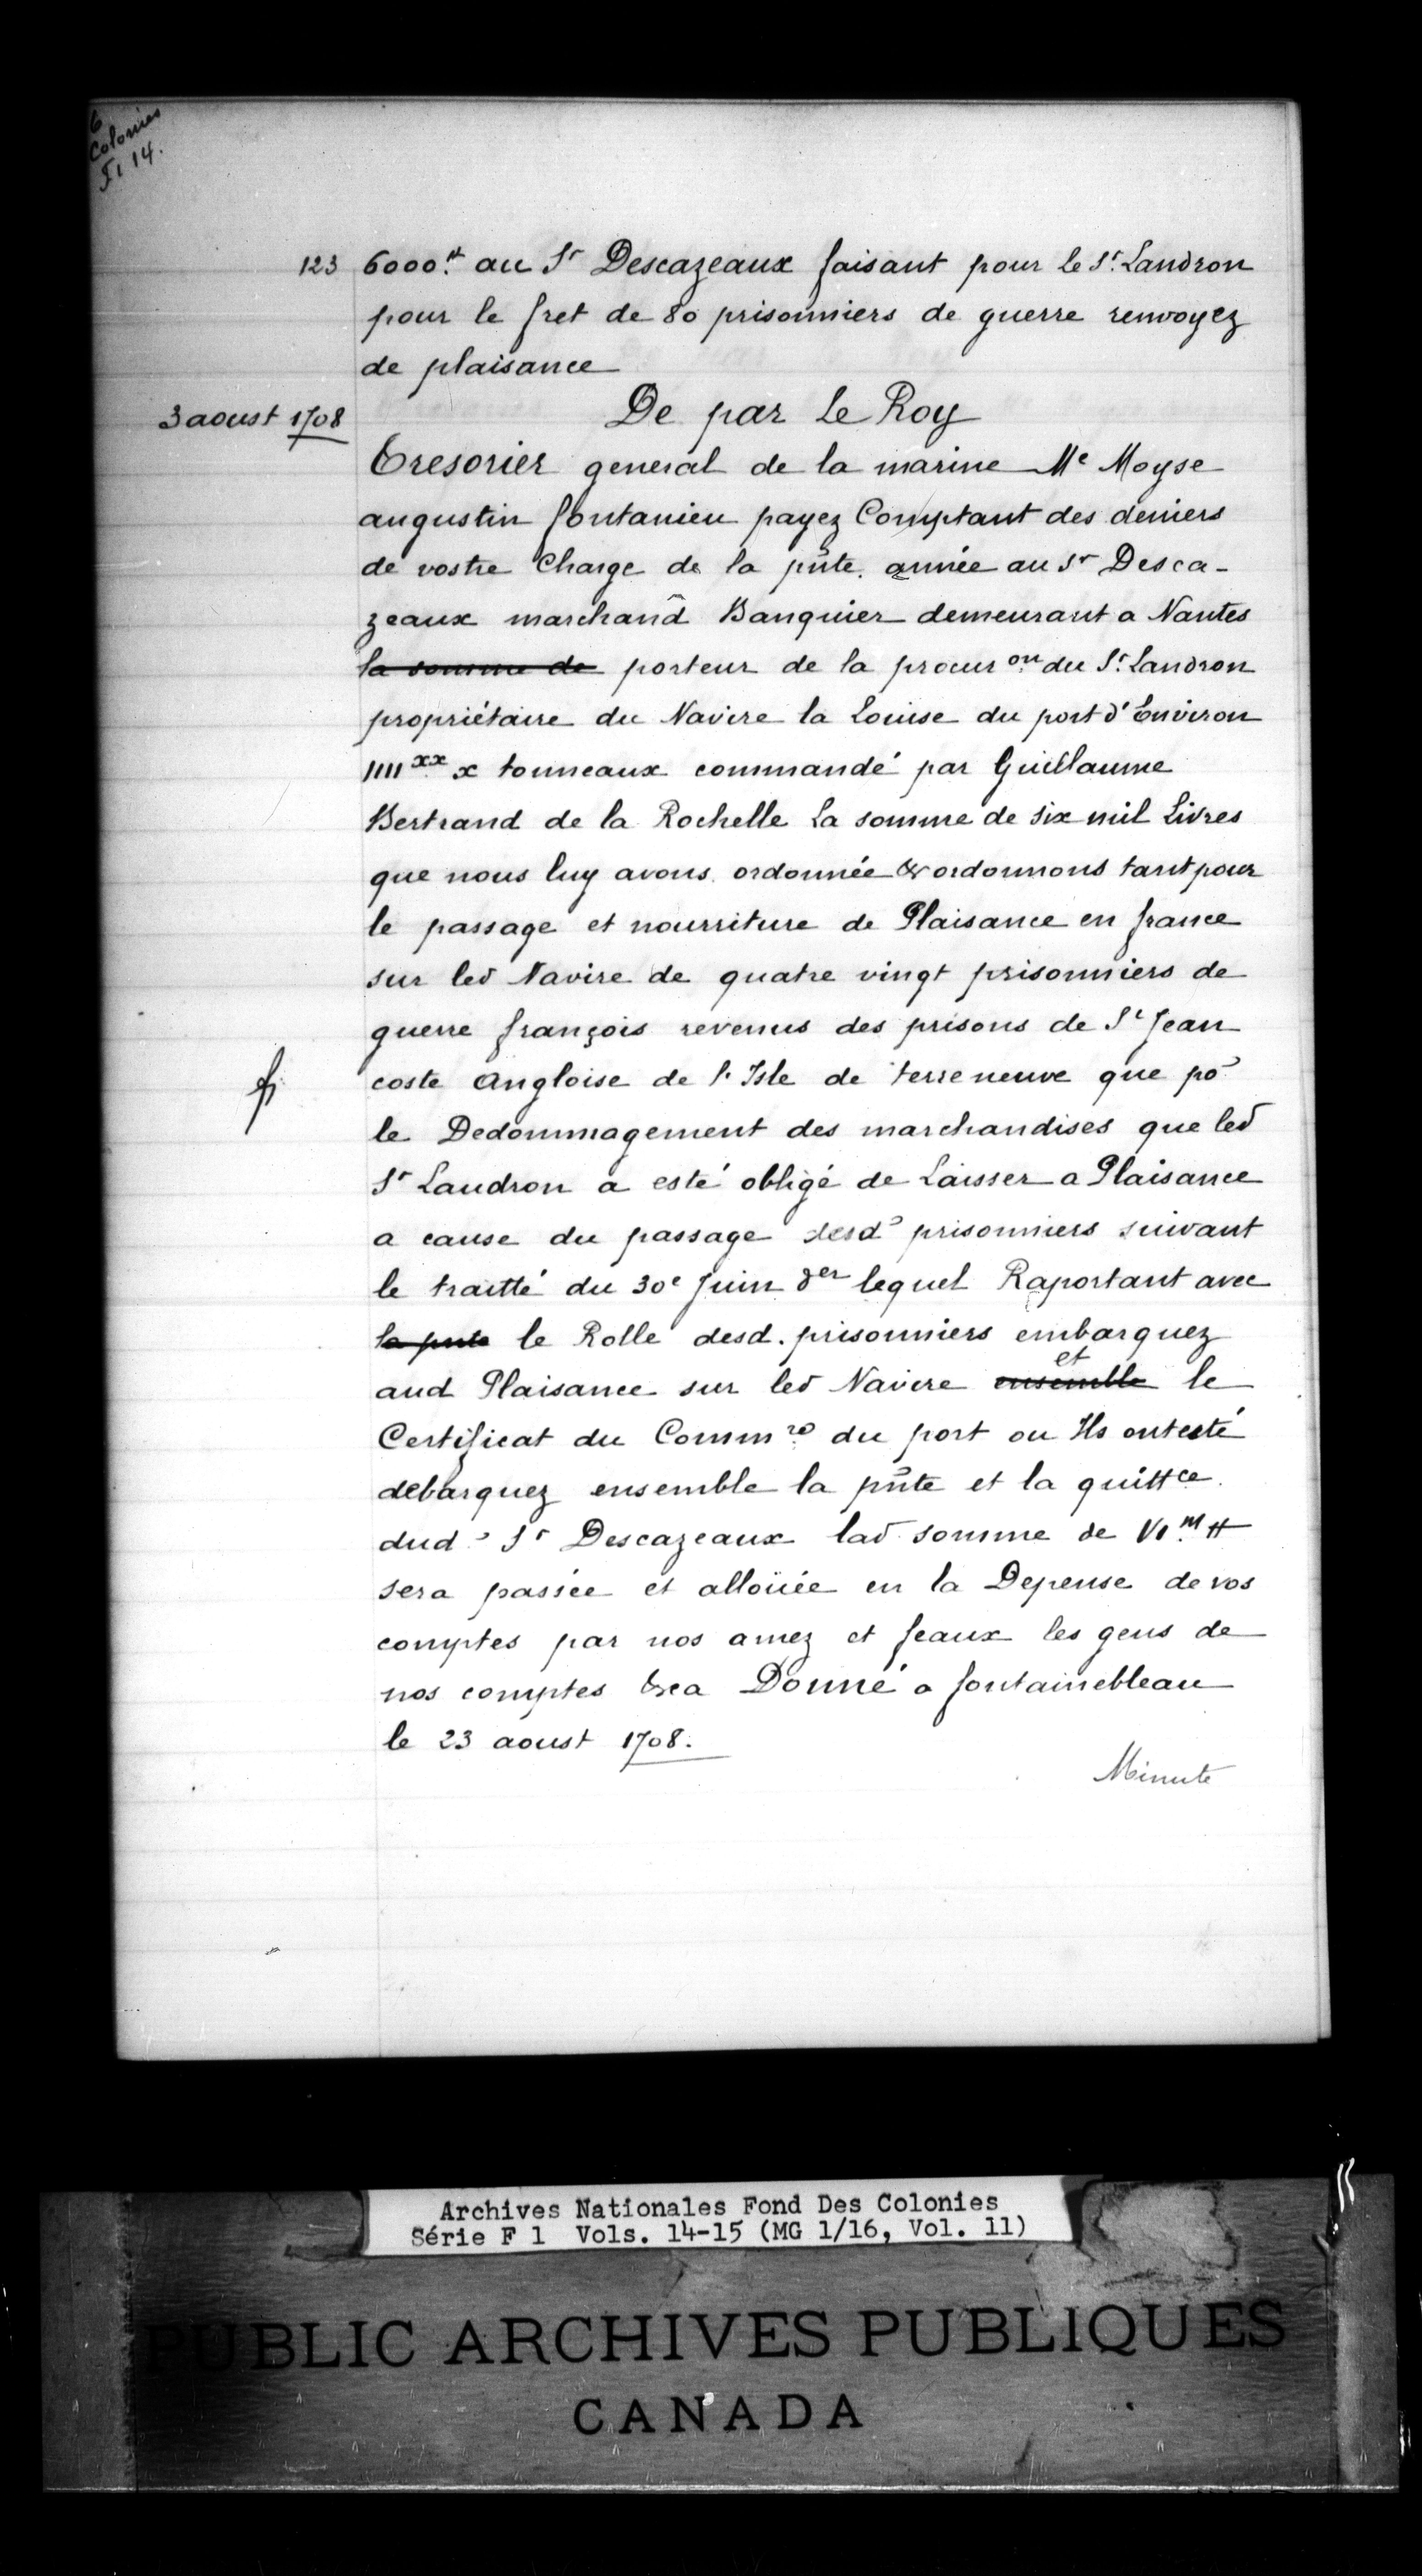 6
Colonies
F1 14.
123 6000.# au Sr Descazeaux faisant pour le Sr. Landron
pour le fret de 80 prisonniers de guerre renvoyez
de plaisance
3 aoust 1708 De par Le Roy
Tresorier general de la marine Me Moyse
augustin fontanieu payez Comptant des deniers
de vostre Charge de la pñte. année au Sr Desca-
zeaux marchand Banquier demeurant a Nantes
~~la somme de~~ porteur de la procuron. du Sr. Landron
propriétaire du Navire la Louise du port d'Environ
IIIIxx x tonneaux commandé par Guillaume
Bertrand de la Rochelle La somme de six mil Livres
que nous luy avons ordonnée & ordonnons tant pour
le passage et nourriture de Plaisance en france
sur led Navire de quatre vingt prisonniers de
guerre françois revenus des prisons de St Jean
coste Angloise de l'Isle de terre neuve que po
le Dedommagement des marchandises que led
Sr Landron a esté obligé de Laisser a Plaisance
a cause du passage desd prisonniers suivant
le traitté du 30e Juin der lequel Raportant avec
~~la pnte~~ le Rolle desd. prisonniers embarquez
aud Plaisance sur led Navire ~~ensemble~~ et le
Certificat du Commre du port ou Ils ont esté
debarquez ensemble la pñte et la quittce.
dud Sr Descazeaux lad somme de VI.M #
sera passée et alloüée en la Depense de vos
comptes par nos amez et feaux les gens de
nos comptes &ca Donné a fontainebleau
le 23 aoust 1708.
Minute
Archives Nationales Fond Des Colonies
Série F 1 Vols. 14-15 (MG 1/16, Vol. 11)
PUBLIC ARCHIVES PUBLIQUES
CANADA